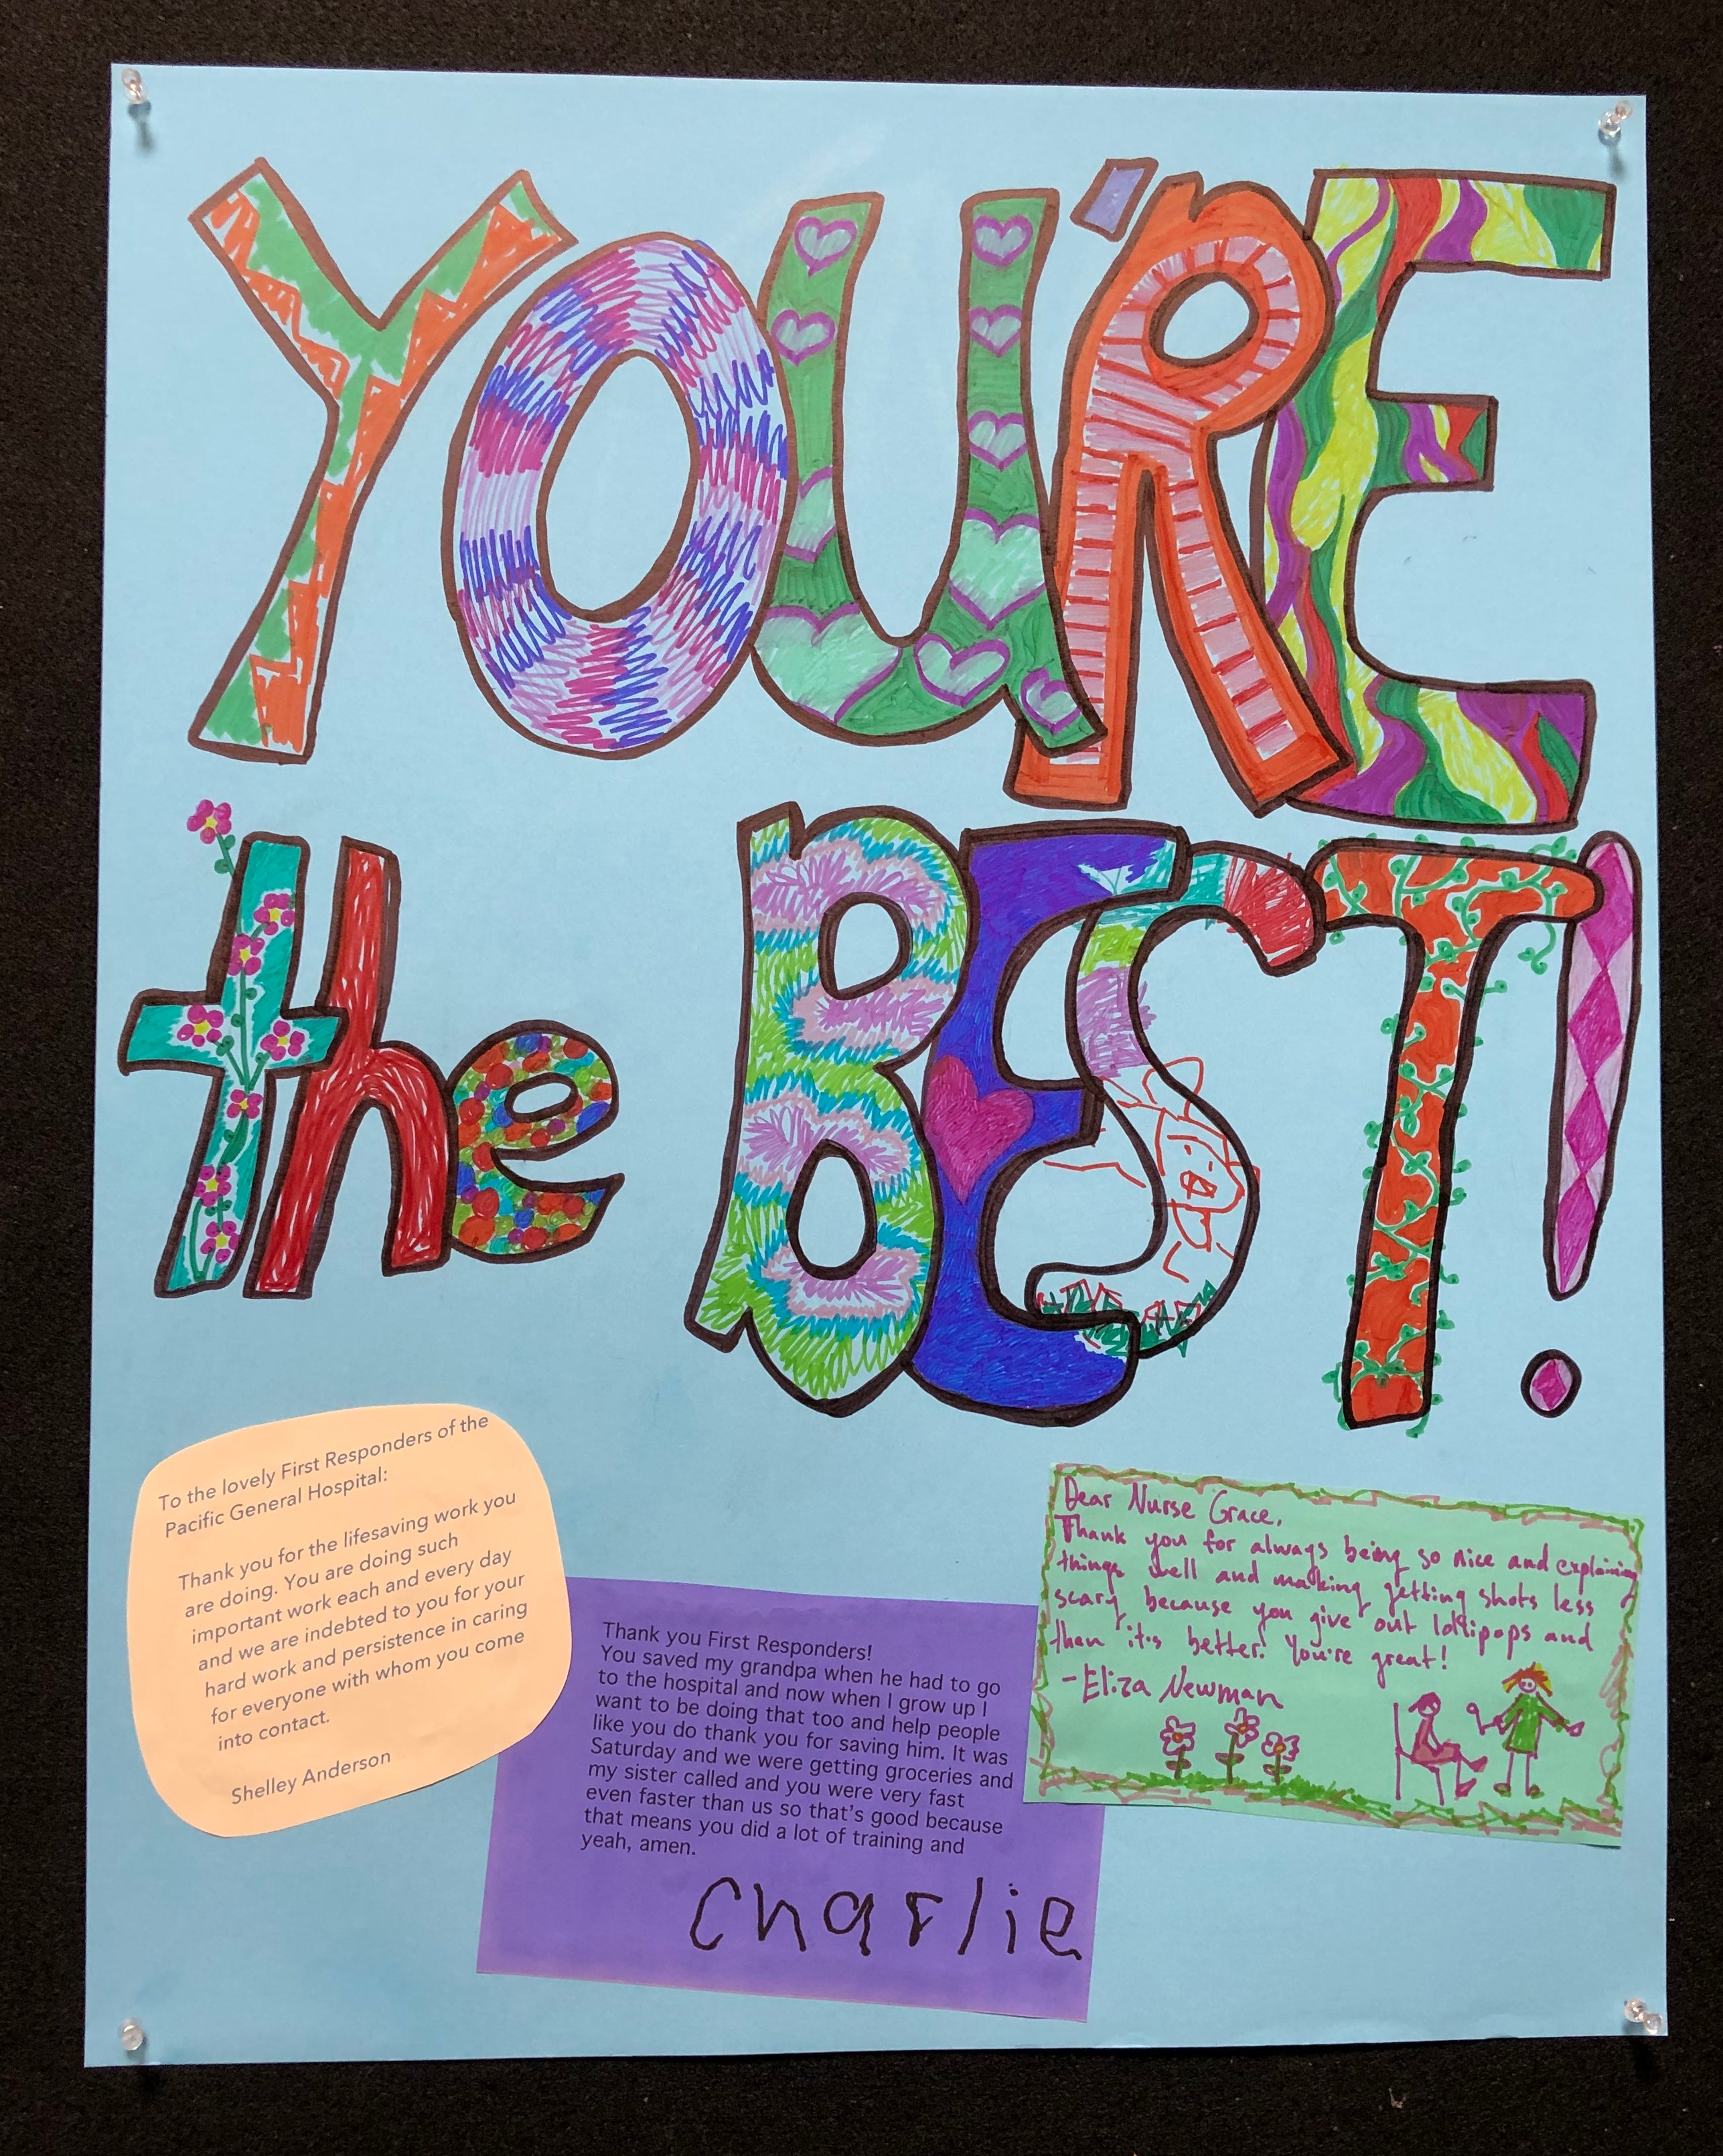 YOU'RE
the BEST!
To the lovely First Responders of the
Pacific General Hospital:
Thank you for the lifesaving work you
are doing. You are doing such
important work each and every day
and we are indebted to you for your
hard work and persistence in caring
for everyone with whom you come
into contact.
Shelley Anderson
Thank you First Responders!
You saved my grandpa when he had to go
to the hospital and now when I grow up I
want to be doing that too and help people
like you do thank you for saving him. It was
Saturday and we were getting groceries and
my sister called and you were very fast
even faster than us so that's good because
that means you did a lot of training and
yeah, amen.
Charlie
Dear Nurse Grace,
Thank you for always being so nice and explaining
things well and making getting shots less
scary because you give out lollipops and
then it's better! You're great!
-Eliza Newman